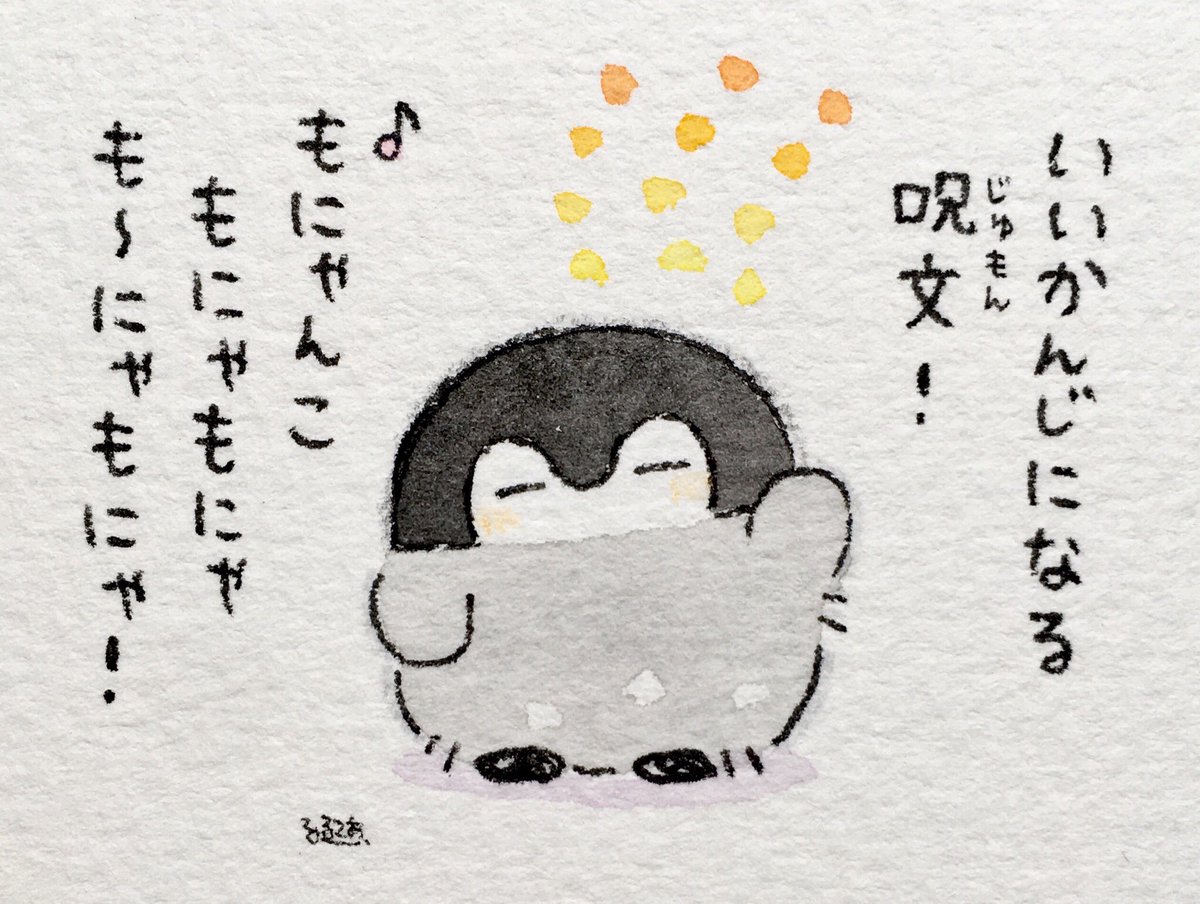 いいかんじになる
呪文!
じゅもん
もにゃんこ
もにゃもにゃ
も〜にゃもにゃ!
るるてあ